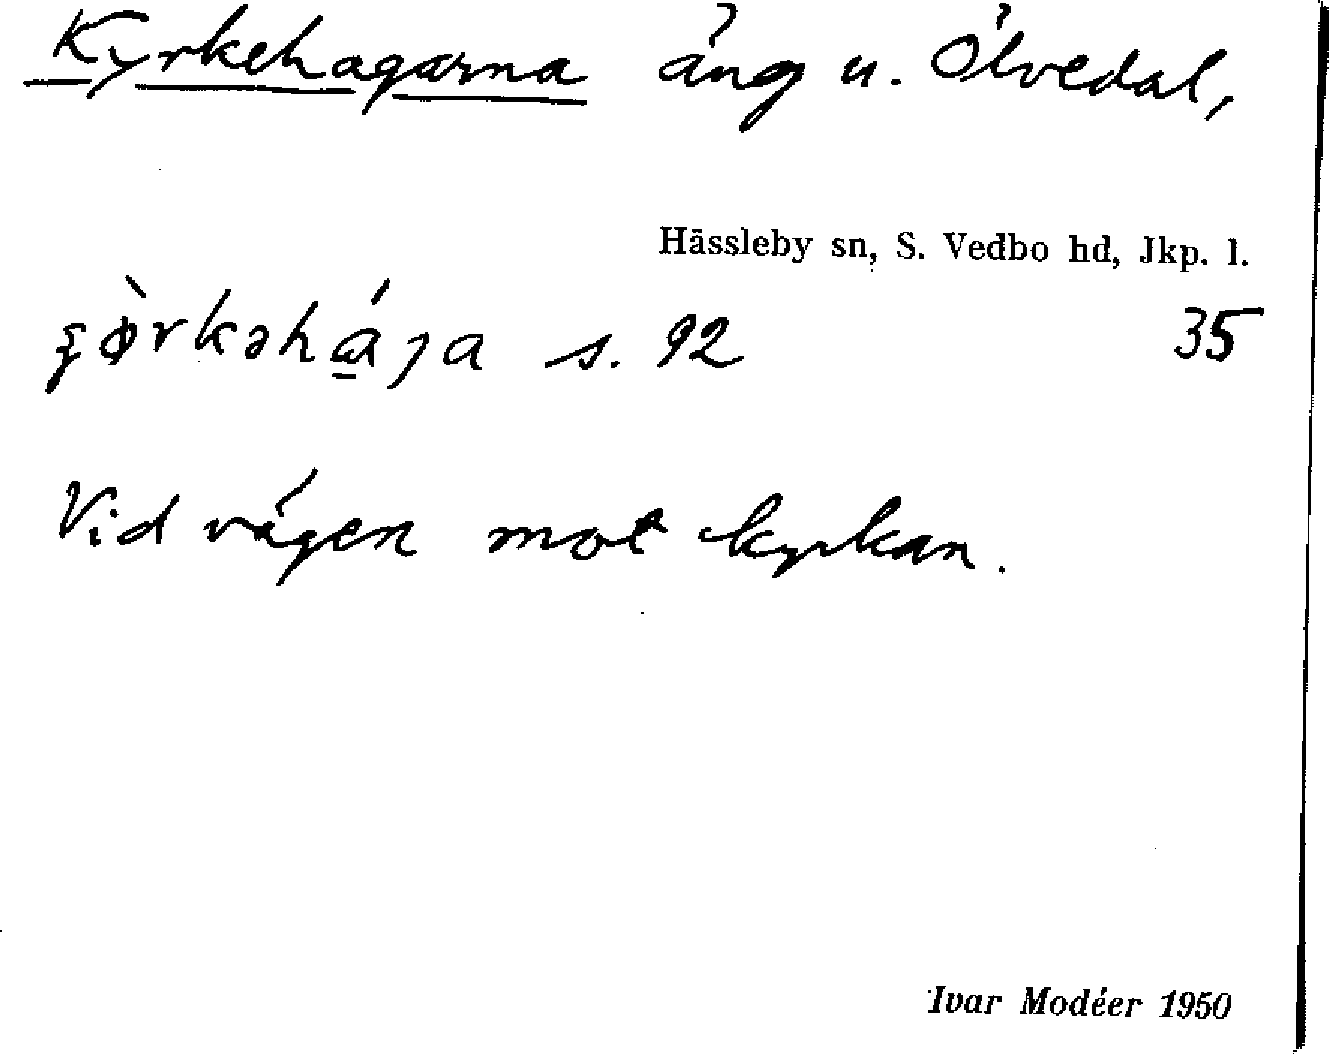 Kyrkehagarna äng u. Ölvedal,
Hässleby sn, S. Vedbo hd, Jkp. l.
s. 92 35
Vid vägen mot kyrkan.
Ivar Modéer 1950